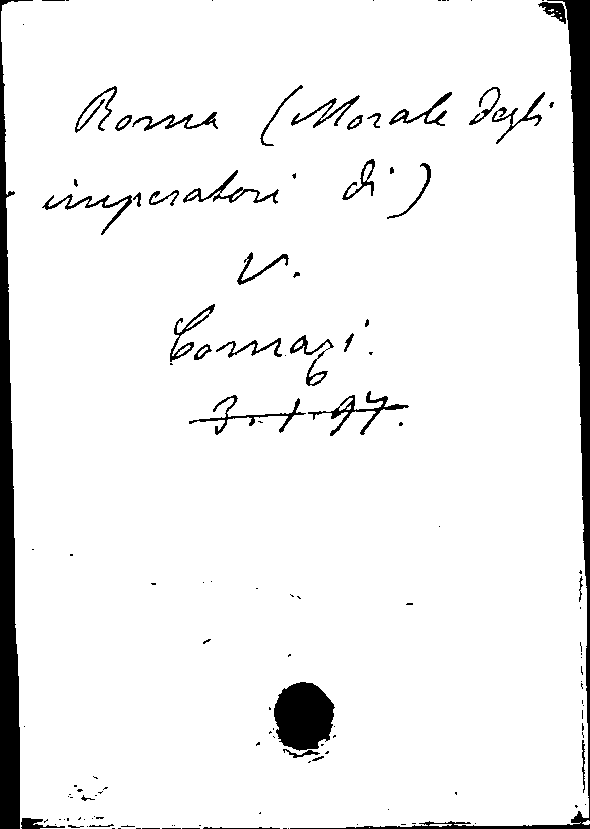 Roma (Morale degli
imperatori di)
V.
Comazi.
3.1.97.